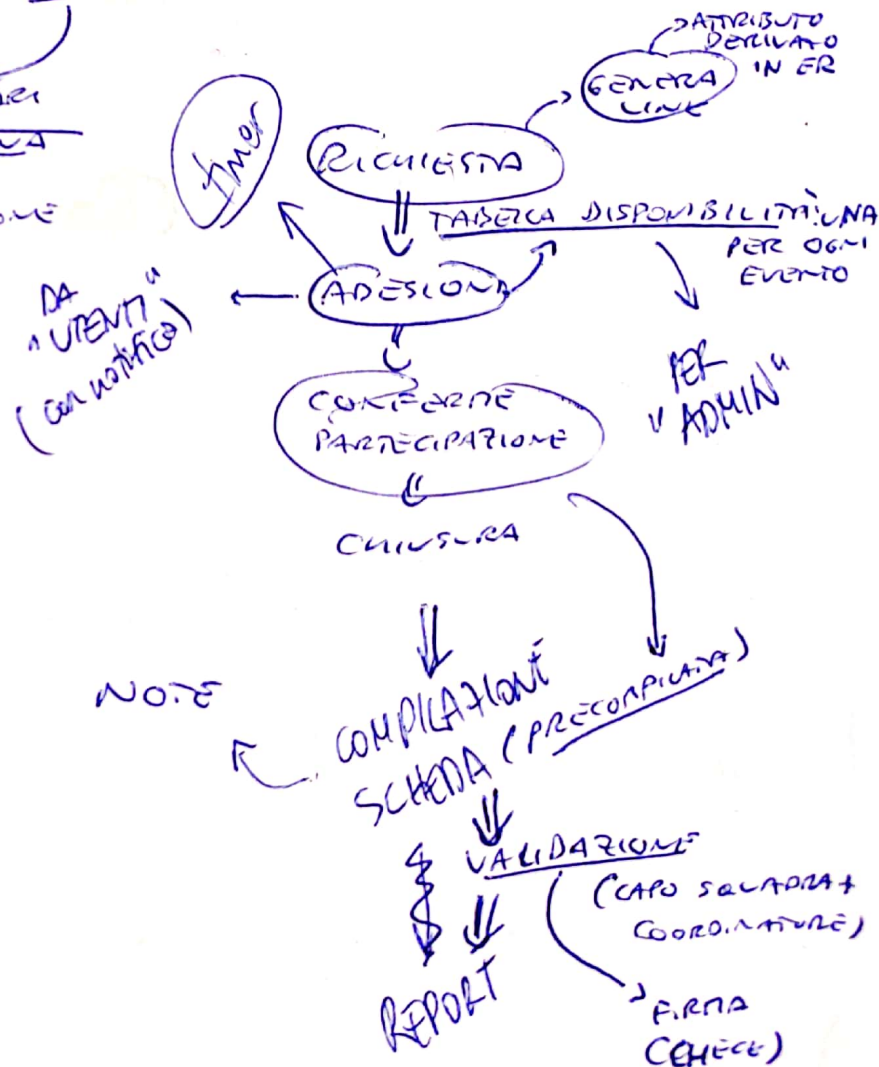 ATTRIBUTO
DERIVATO
IN ER
GENERA
LINK
timer
RICHIESTA
TABELLA DISPONIBILITÀ: UNA
PER OGNI
EVENTO
ADESIONI
DA
"UTENTI"
(con notifica)
PER
"ADMIN"
CONFERME
PARTECIPAZIONE
CHIUSURA
NOTE
COMPILAZIONE
SCHEDA (PRECOMPILATA)
VALIDAZIONE
(CAPO SQUADRA +
COORDINATORE)
REPORT
FIRMA
(CHECK)